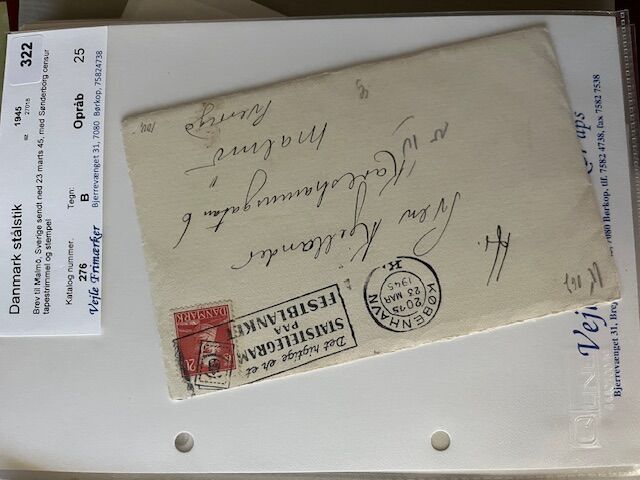 322
Danmark stålstik
sz 1945
27018
Brev til Malmö, Sverige sendt ned 23 marts 45, med Sønderborg censur
tapestrimmel og stempel
Katalog nummer. Tegn: Opråb
276 B 25
Vejle Frimærker Bjerrevænget 31, 7080 Børkop, 75824738
100,-
Hr.
Sven Kjellander
Karlshamnsgatan 6
Malmö
Sverige
KØBENHAVN
20-45
23 MAR
1945
K.
Det rigtige er et
STATSTELEGRAM
PAA
FESTBLANKET
DANMARK
20
Vejl
aps
Bjerrevænget 31, Brø
7080 Børkop, tlf. 7582 4738, fax 7582 7538